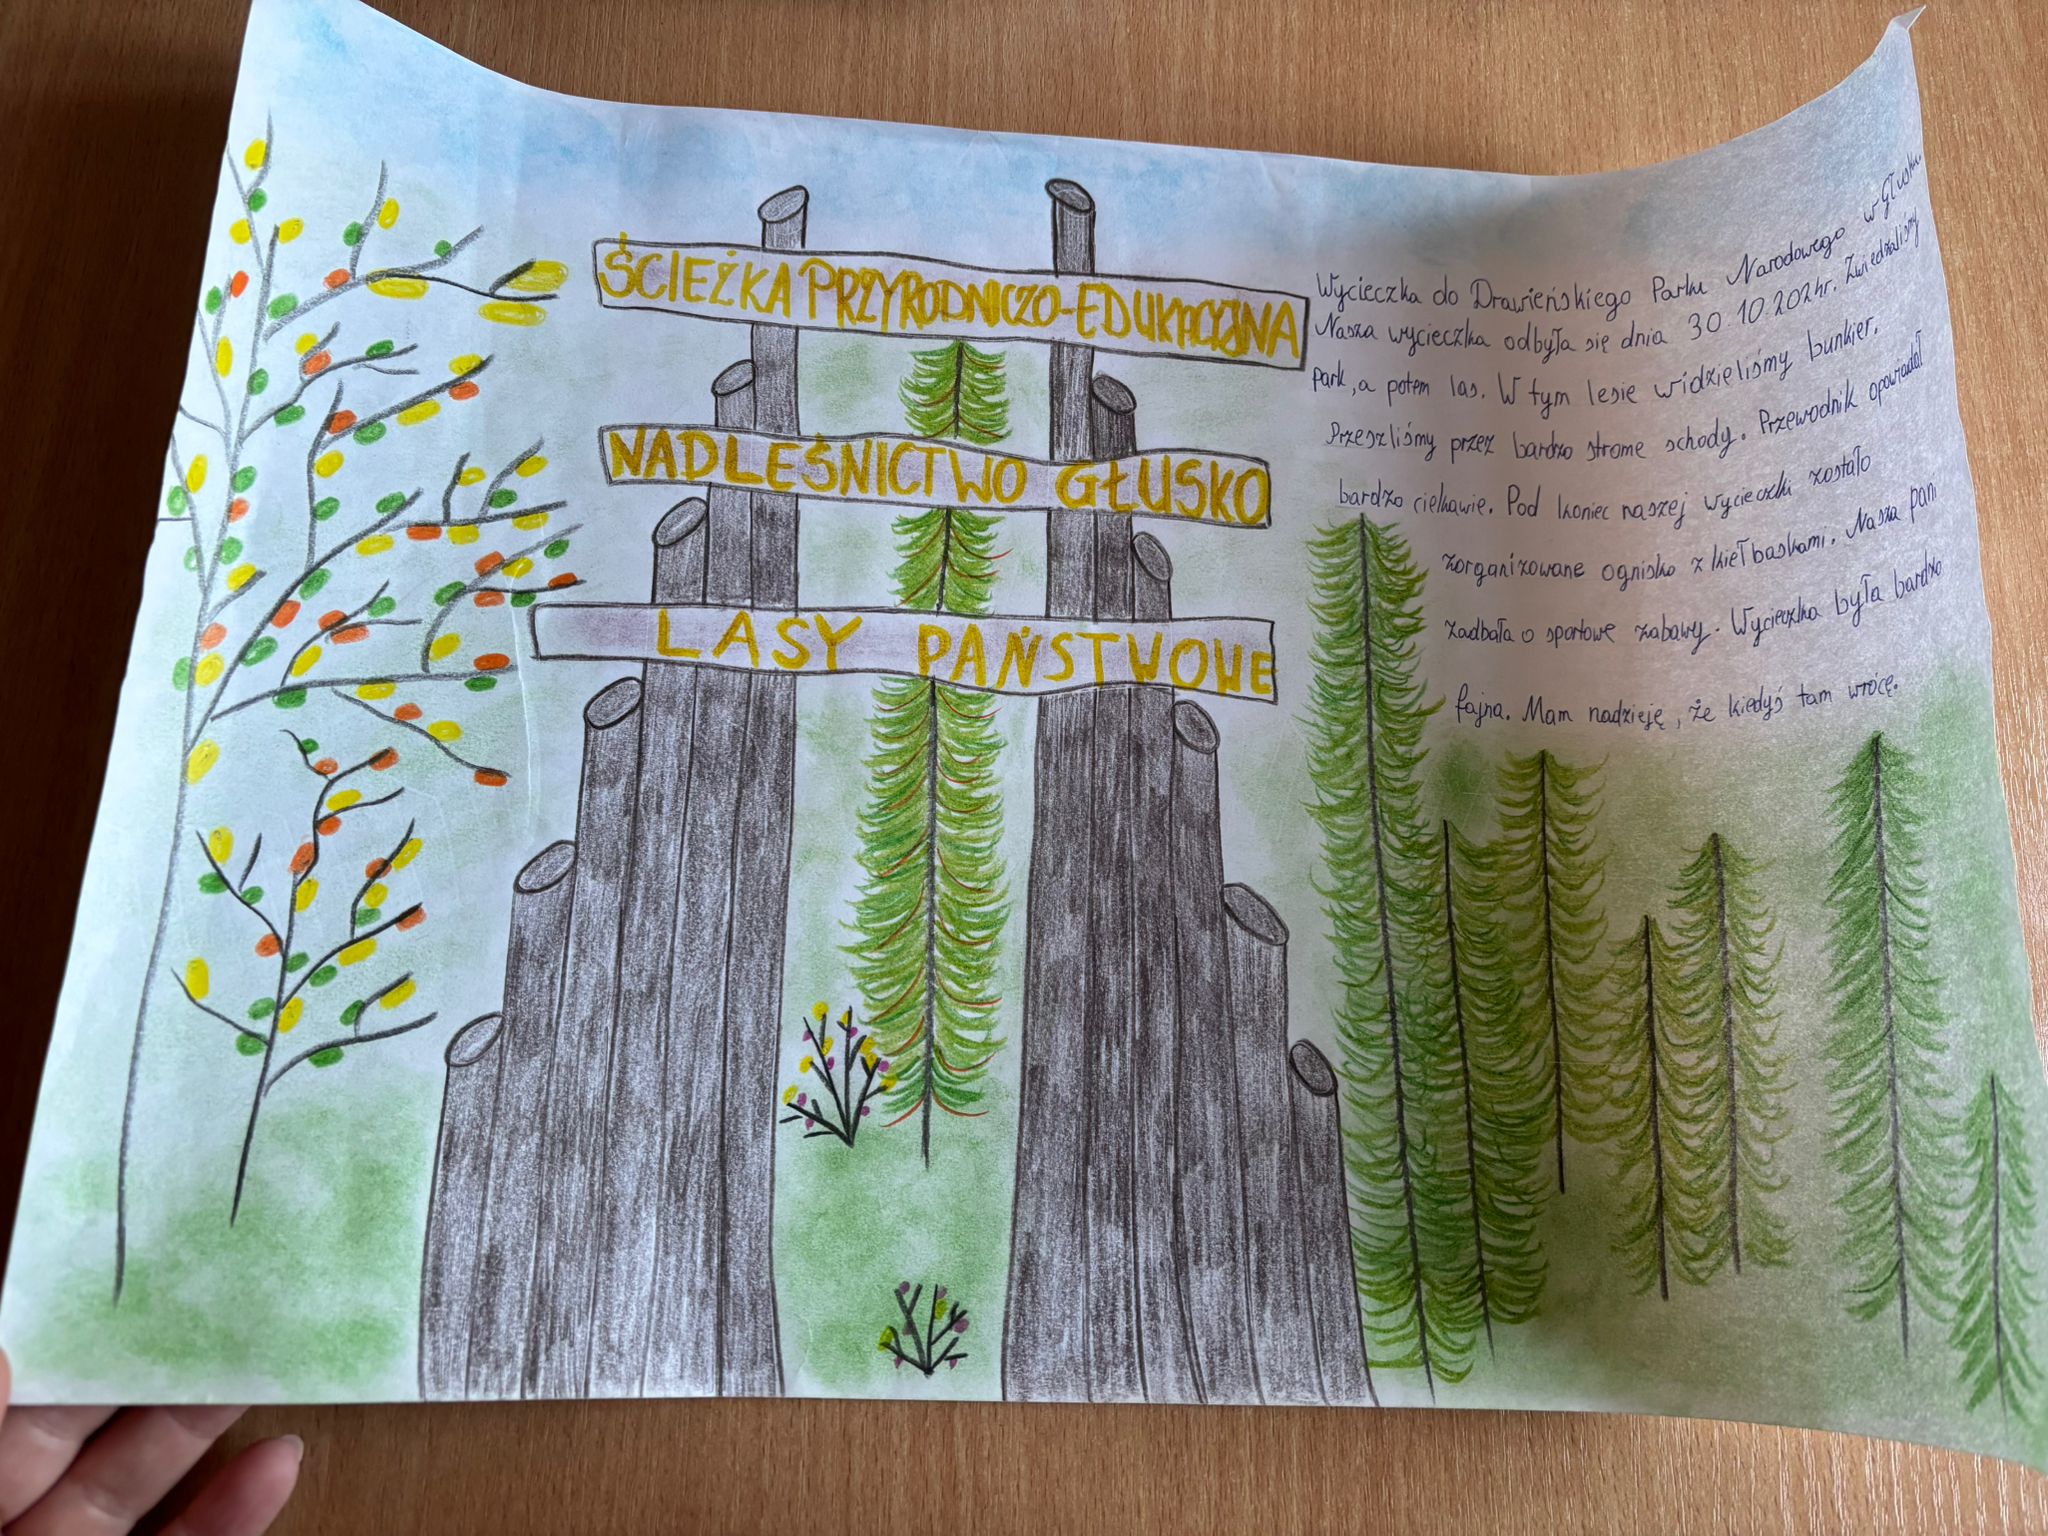 ŚCIEŻKA PRZYRODNICZO-EDUKACYJNA
NADLEŚNICTWO GŁUSKO
LASY PAŃSTWOWE
Wycieczka do Drawieńskiego Parku Narodowego w Głusku.
Nasza wycieczka odbyła się dnia 30.10.2024r. Zwiedzaliśmy
park, a potem las. W tym lesie widzieliśmy bunkier.
Przeszliśmy przez bardzo strome schody. Przewodnik opowiadał
bardzo ciekawie. Pod koniec naszej wycieczki zostało
zorganizowane ognisko z kiełbaskami. Nasza pani
zadbała o sportowe zabawy. Wycieczka była bardzo
fajna. Mam nadzieję, że kiedyś tam wrócę.